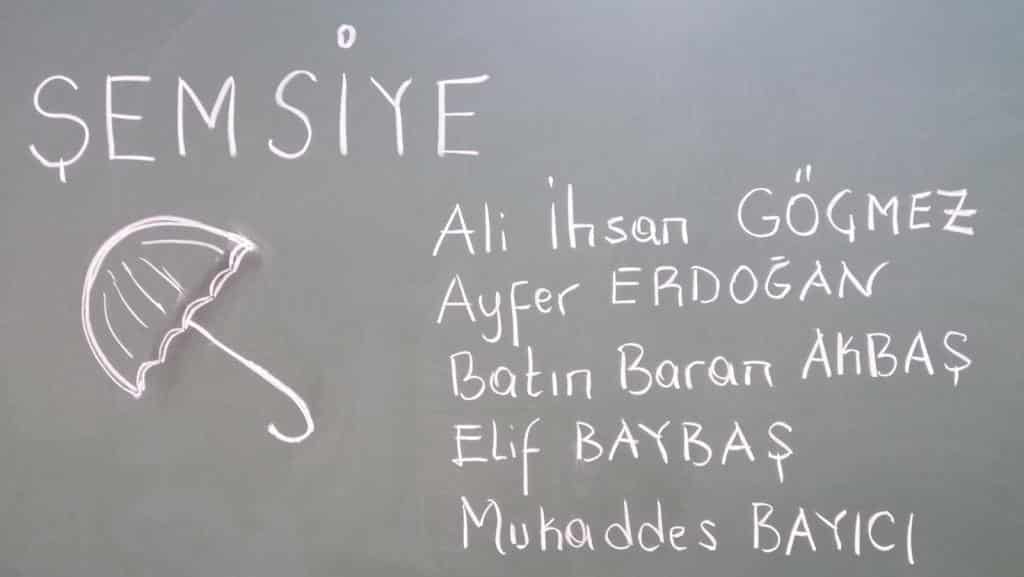 ŞEMSİYE
Ali İhsan GÖÇMEZ
Ayfer ERDOĞAN
Batın Baran AKBAŞ
Elif BAYBAŞ
Mukaddes BAYICI